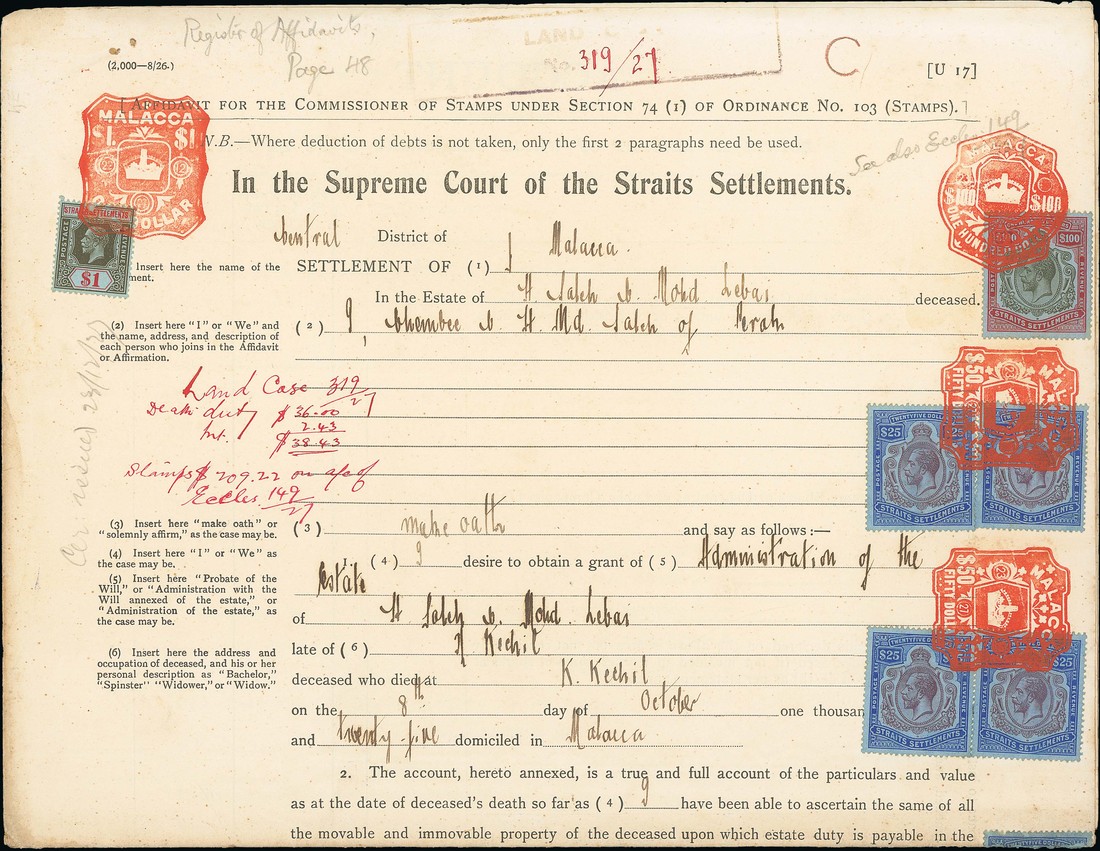 Register of Affidavits,
Page 48
(2,000—8/26.)
LAND
No. 319/27
C
[U 17]
[Affidavit for the Commissioner of Stamps under Section 74 (1) of Ordinance No. 103 (Stamps).]
N.B.—Where deduction of debts is not taken, only the first 2 paragraphs need be used.
See also Eccles 149
In the Supreme Court of the Straits Settlements.
MALACCA
$1. $1
DOLLAR
STRAITS SETTLEMENTS
POSTAGE REVENUE
$1
MALACCA
$100 $100
ONE HUNDRED
$100
STRAITS SETTLEMENTS
Central District of
Insert here the name of the
SETTLEMENT OF (1) Malacca.
In the Estate of H. Saleh b. Mohd Lebai deceased.
(2) Insert here "I" or "We" and
the name, address, and description of
each person who joins in the Affidavit
or Affirmation.
(2) I, Chembee b. H. Md. Saleh of Perah
Land Case 319/27
Death duty $36.00
Int. 2.43
$38.43
Stamps $209.22 on a/c of
Eccles 149/27
MALACCA
$50 FIFTY DOLLARS
TWENTYFIVE DOLLARS
$25
POSTAGE REVENUE
STRAITS SETTLEMENTS
STRAITS SETTLEMENTS
(3) Insert here "make oath" or
"solemnly affirm," as the case may be.
(3) make oath and say as follows:—
(4) Insert here "I" or "We" as
the case may be.
(4) I desire to obtain a grant of (5) Administration of the
(5) Insert here "Probate of the
Will," or "Administration with the
Will annexed of the estate," or
"Administration of the estate," as
the case may be.
Estate
of H Saleh b. Mohd. Lebai
MALACCA
$50 FIFTY DOLLARS
TWENTYFIVE DOLLARS
$25 $25
STRAITS SETTLEMENTS
STRAITS SETTLEMENTS
(6) Insert here the address and
occupation of deceased, and his or her
personal description as "Bachelor,"
"Spinster" "Widower," or "Widow."
late of (6) K Kechil
deceased who died at K. Kechil
on the 8th day of October one thousan
and twenty-five domiciled in Malacca
2. The account, hereto annexed, is a true and full account of the particulars and value
as at the date of deceased's death so far as (4) I have been able to ascertain the same of all
the movable and immovable property of the deceased upon which estate duty is payable in the